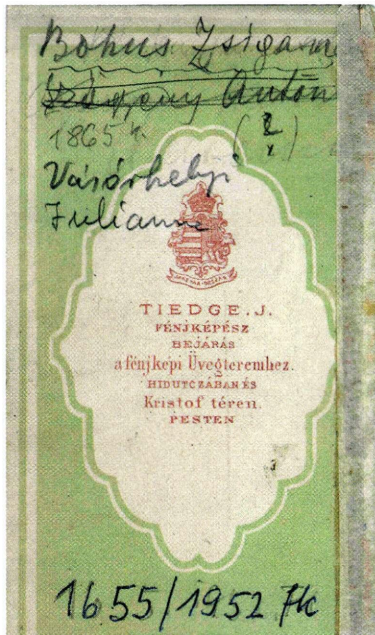 Bohus Zsigm
Antón
1865
(?)
Vásárhelyi
Julianne
TIEDGE. J.
FÉNJKÉPÉSZ
BEJÁRÁS
a fénjképi Üvegteremhez.
HIDUTCZÁBAN ÉS
Kristof téren.
PESTEN
1655/1952 Fk